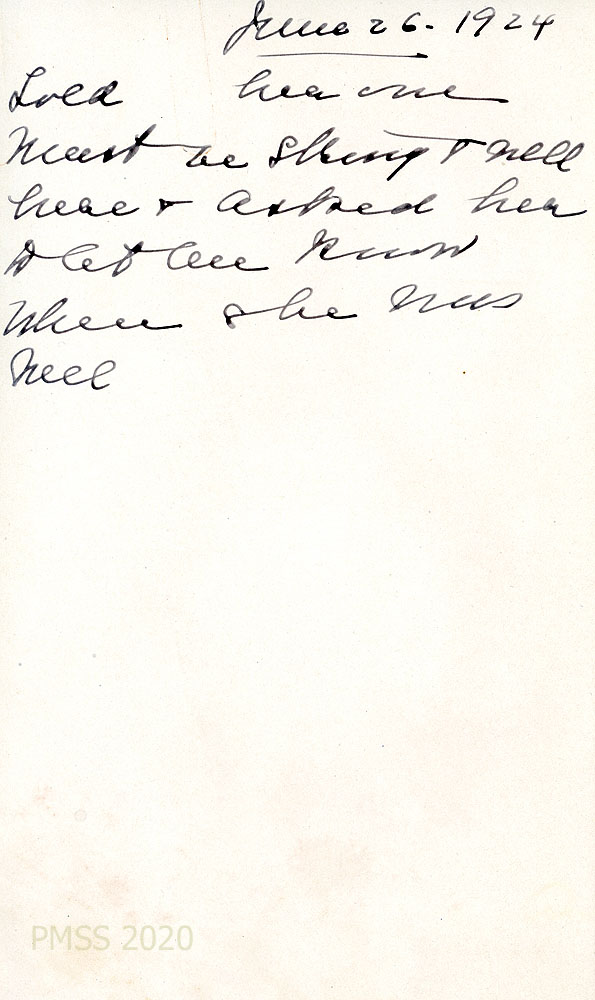 June 26. 1924
Told her one
must be strong & well
here & asked her
to let me know
when she was
well
PMSS 2020